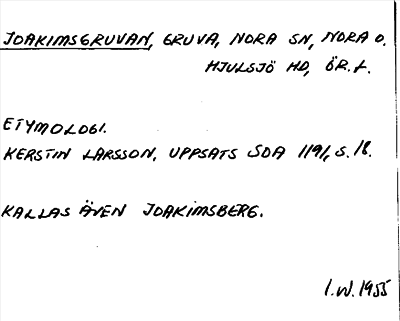 JOAKIMSGRUVAN, GRUVA, NORA SN, NORA O.
HJULSJÖ HD, ÖR. L.
ETYMOLOGI.
KERSTIN LARSSON, UPPSATS SDA 1191, S. 18.
KALLAS ÄVEN JOAKIMSBERG.
I.W. 1955